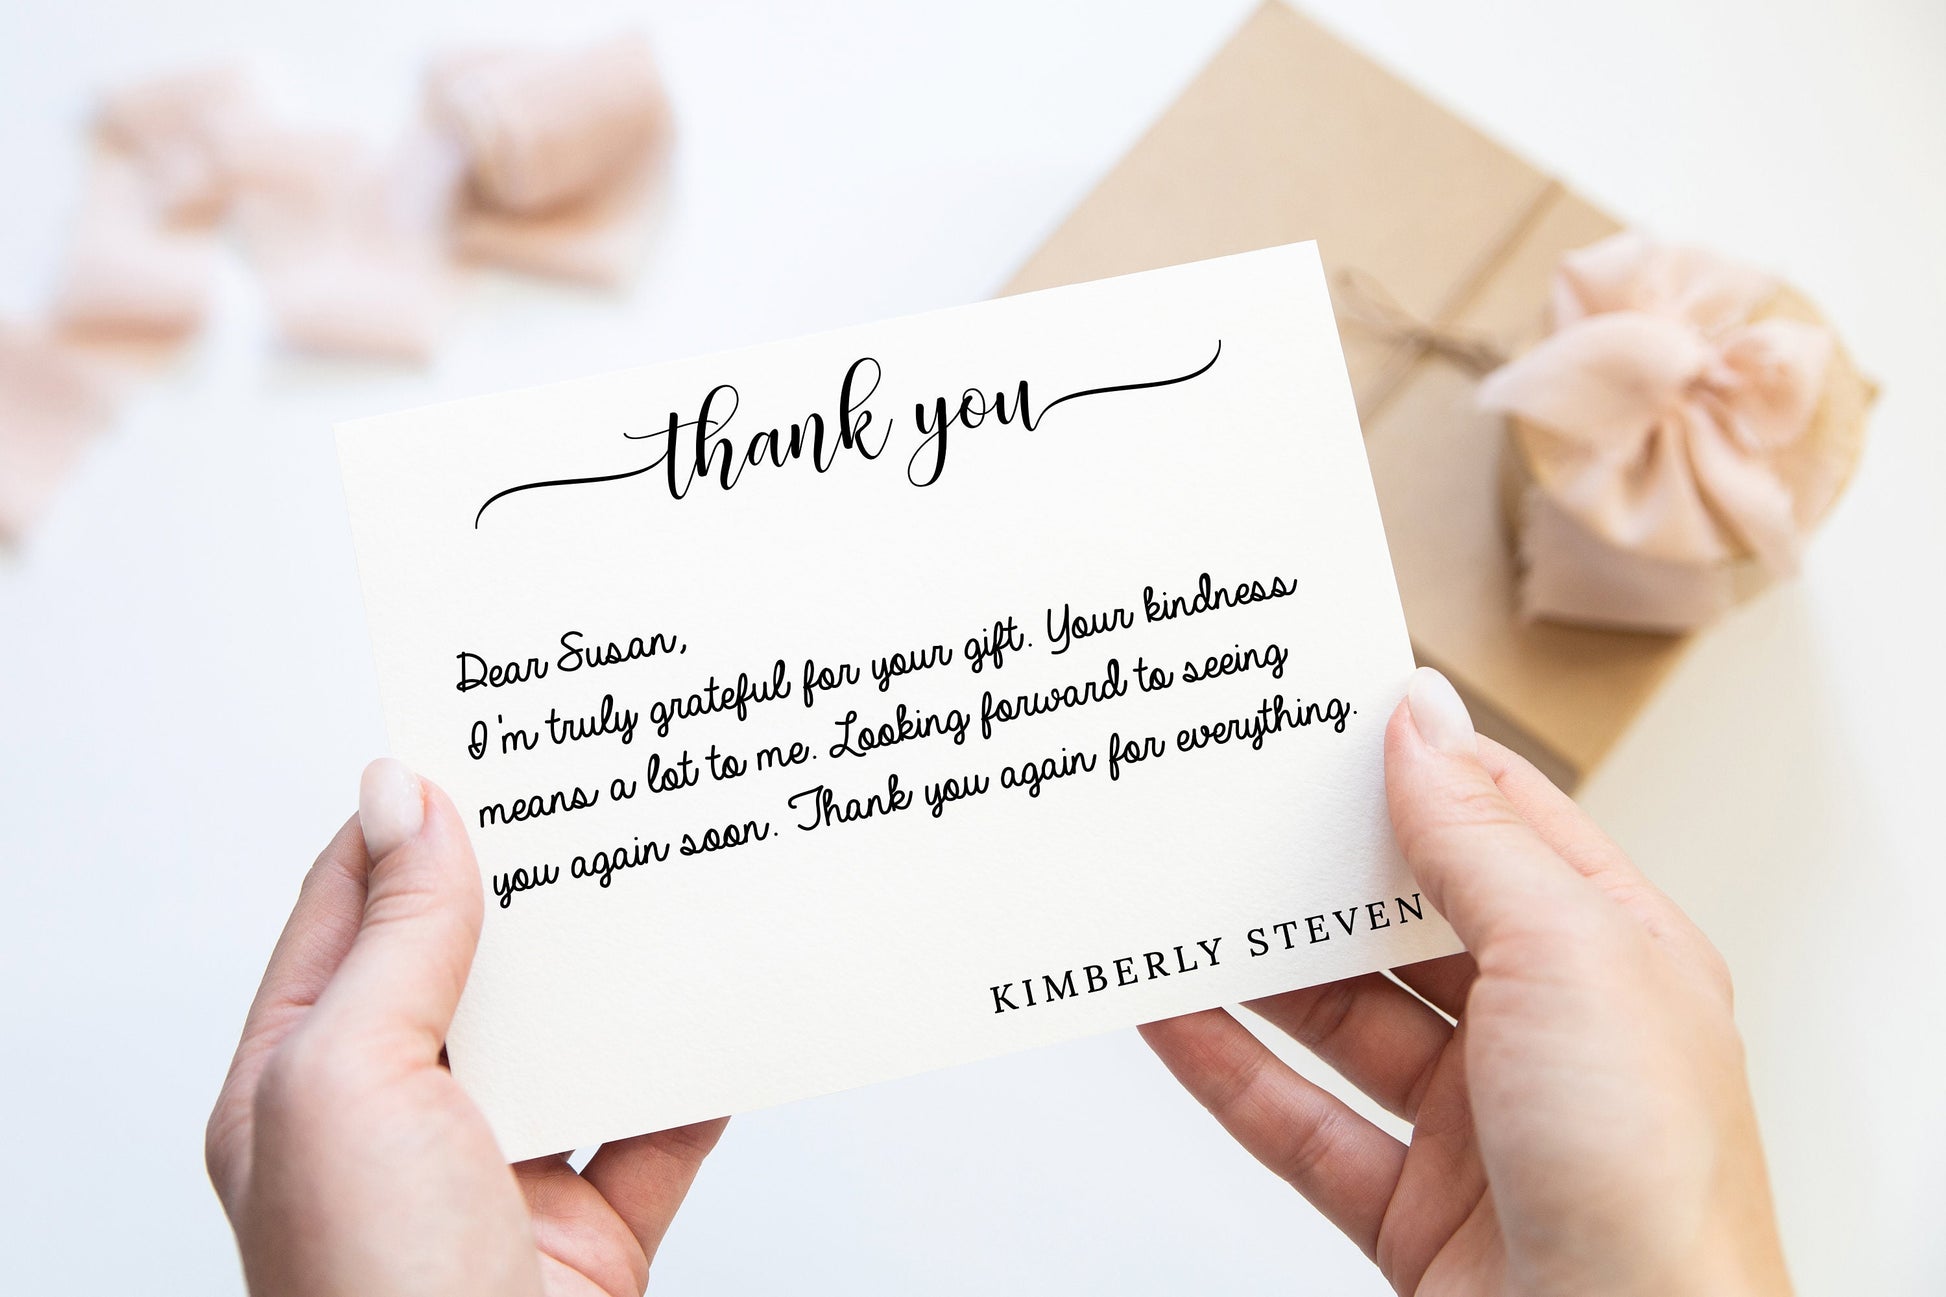 thank you
Dear Susan,
I'm truly grateful for your gift. Your kindness
means a lot to me. Looking forward to seeing
you again soon. Thank you again for everything.
KIMBERLY STEVEN